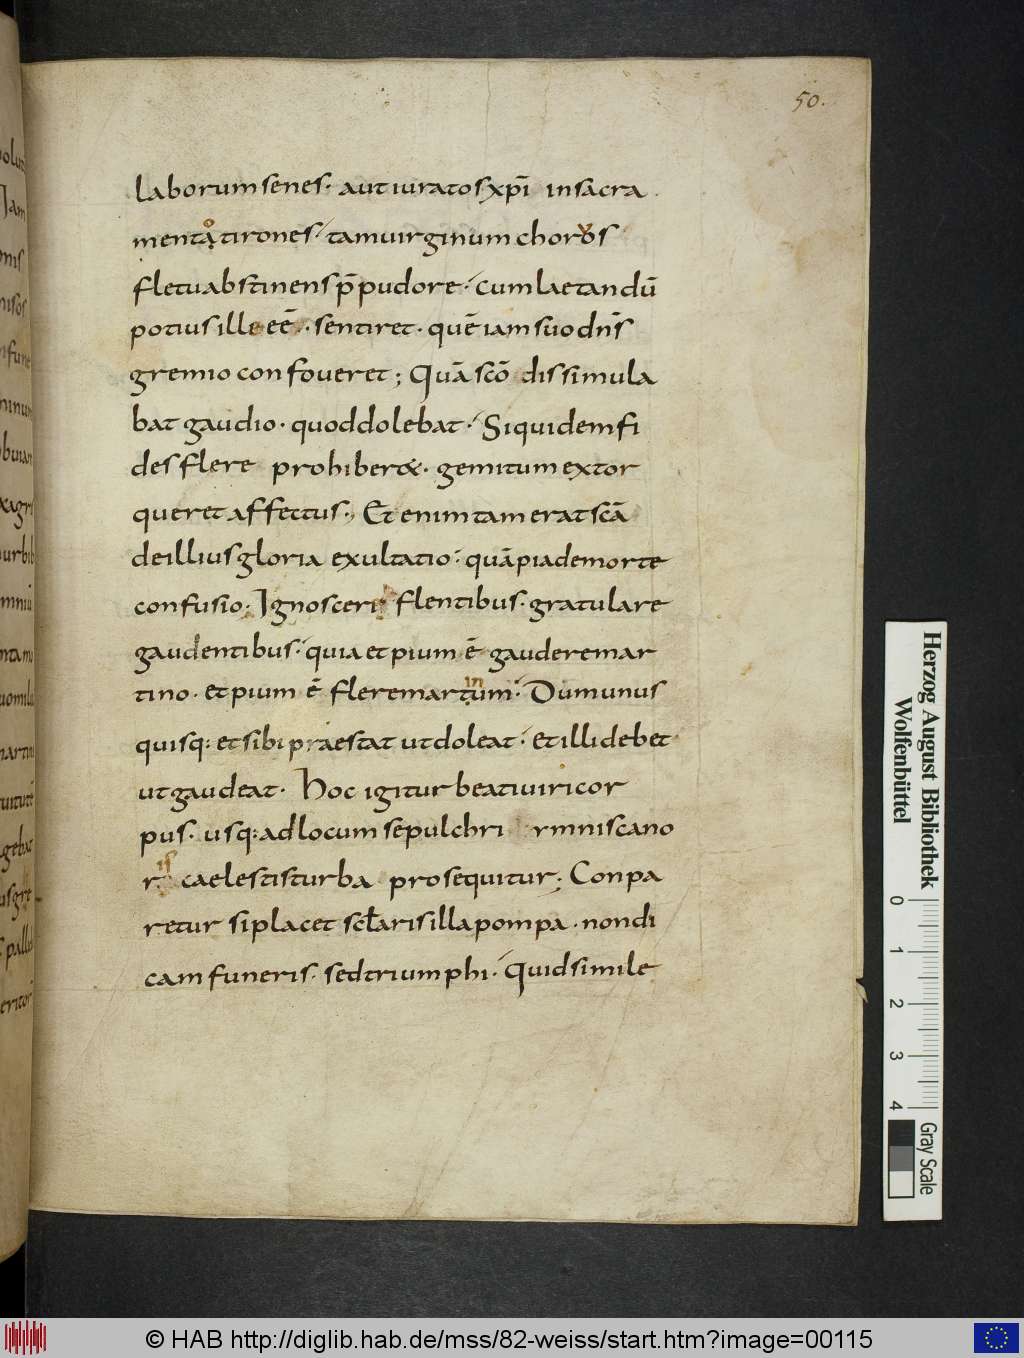 50.
laborum senes· aut iuratos xp̄i in sacra
menta tirones· tam uirginum choros
fletu abstinens p̄ pudore· cum laetandū
potius ille eē· sentiret· quē iam suo dn̄s
gremio confoueret; Quā scō dissimula
bat gaudio· quod dolebat· Siquidem fi
des flere prohiberet· gemitum extor
queret affectus· Et enim tam erat scā
de illius gloria exultatio· quā pia de morte
confusio· Ignoscere flentibus· gratulare
gaudentibus· quia et pium ē gaudere mar
tino· et pium ē flere martinum· Dum unus
quisq: et sibi praestat ut doleat· et illi debet
ut gaudeat· Hoc igitur beati uiri cor
pus· usq: ad locum sepulchri ymnis cano
ris caelestis turba prosequitur; Conpa
retur si placet sclaris illa pompa· non di
cam funeris· sed triumphi· Quid simile
Herzog August Bibliothek
Wolfenbüttel
0 1 2 3 4
Gray Scale
© HAB http://diglib.hab.de/mss/82-weiss/start.htm?image=00115